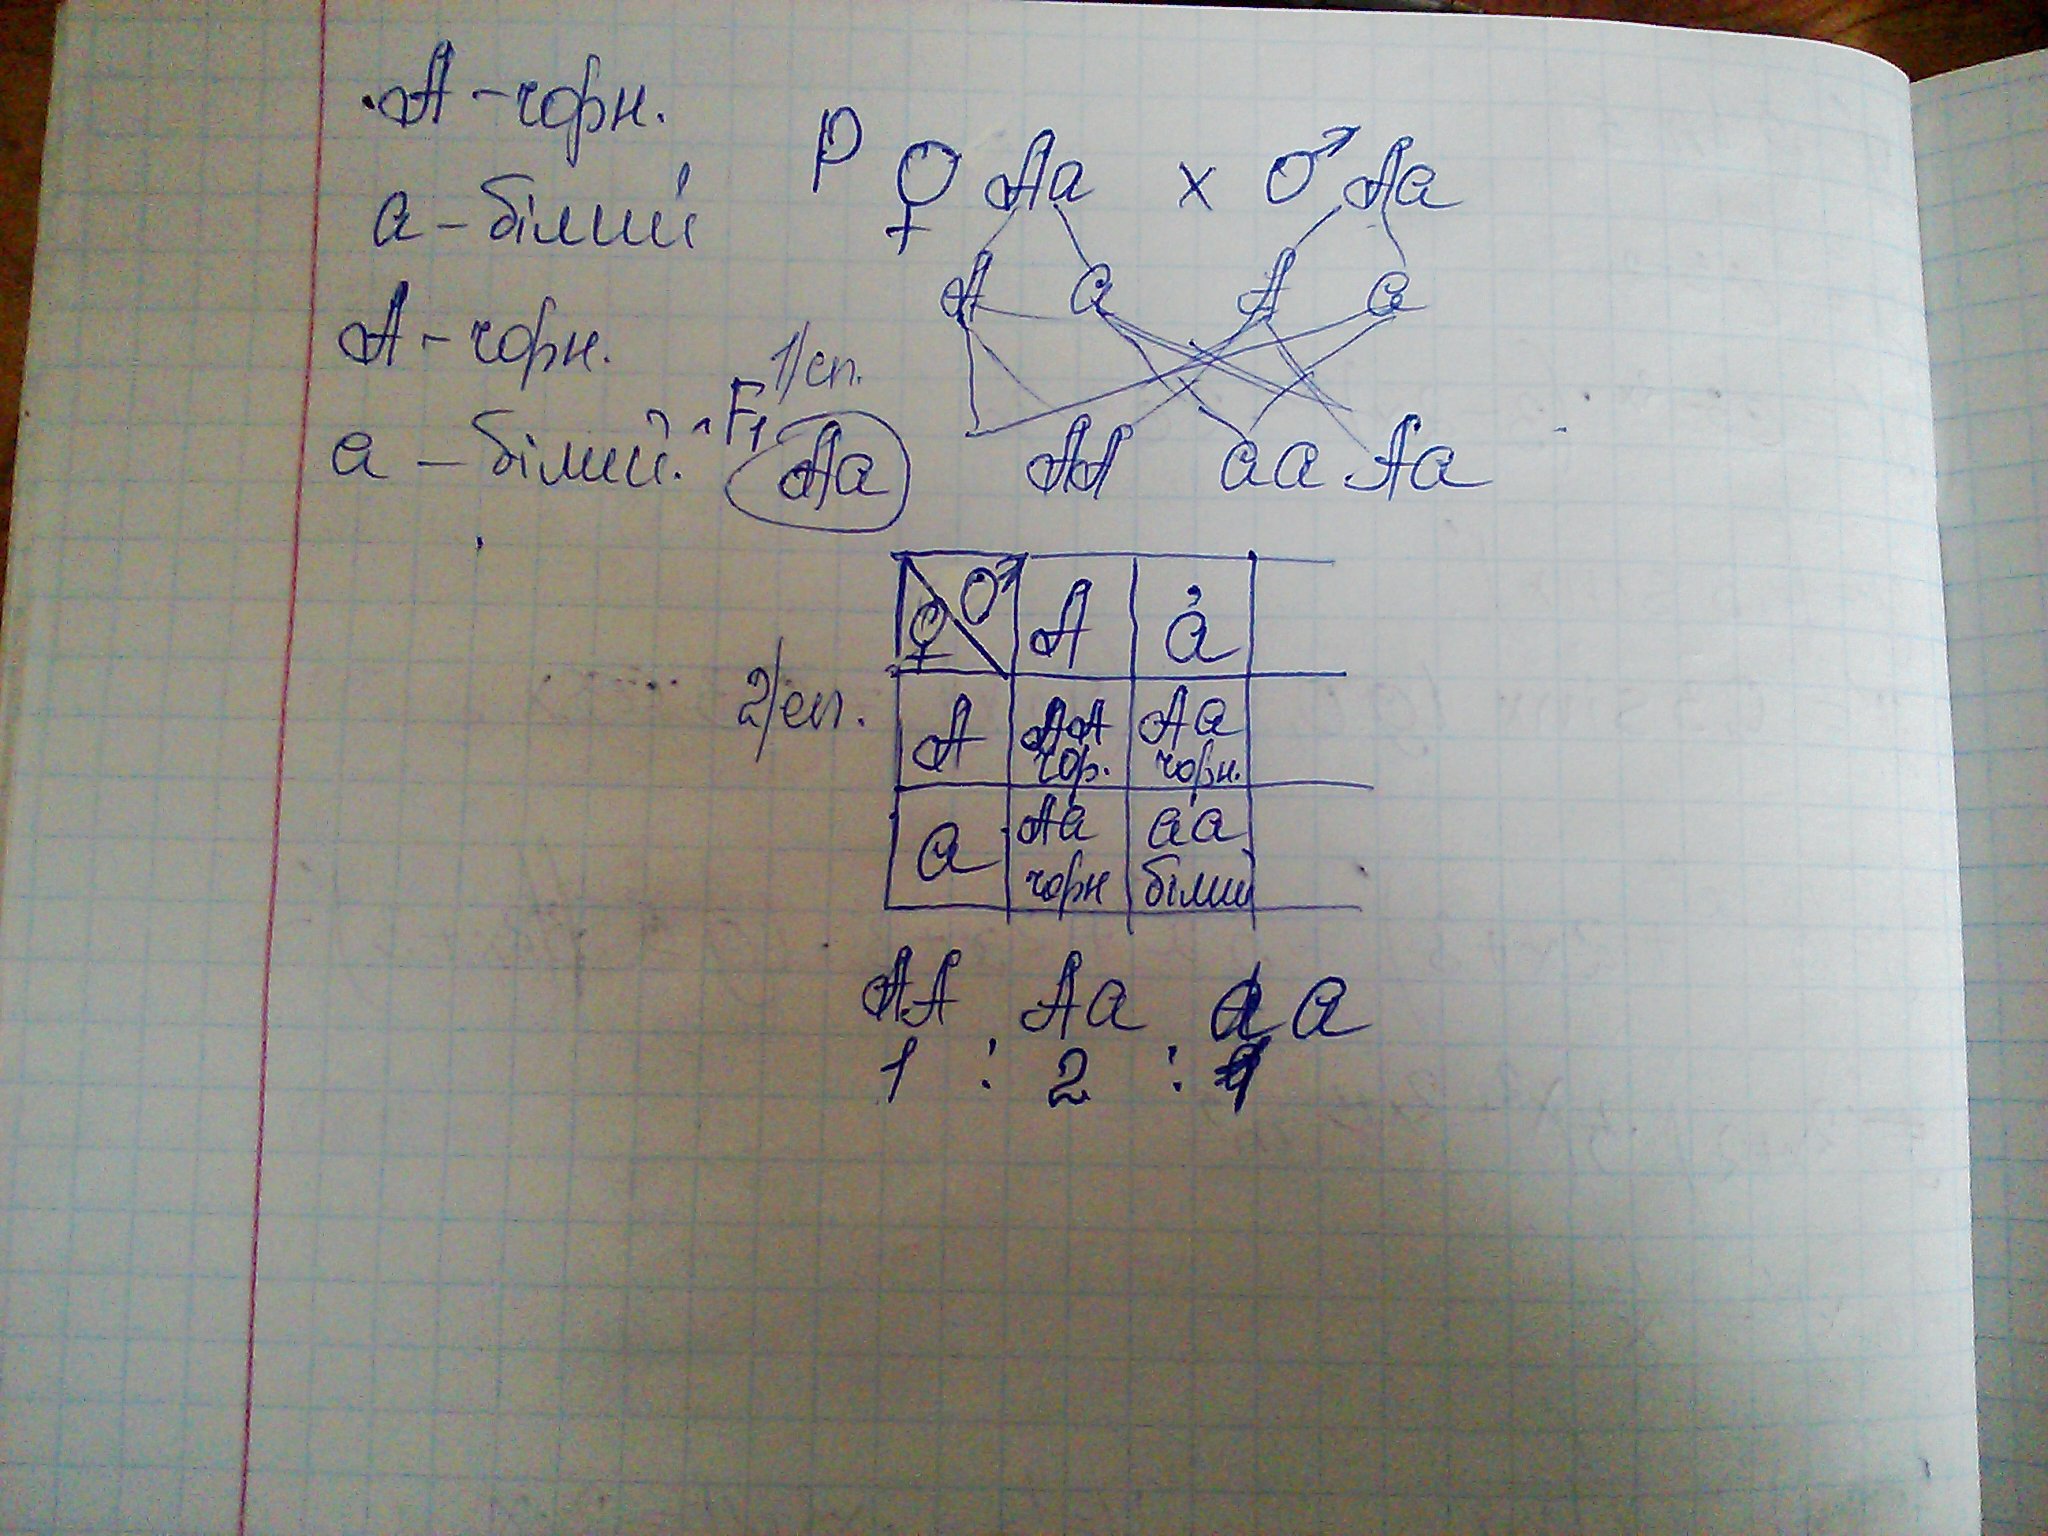 A – чорн.
а – білий
A – чорн.
а – білий.
P ♀ Aa x ♂ Aa
A a A a
1/сп.
F1 Aa AA aa Aa
2/сп.
♀ ♂ A a
A AA Aa
чор. чорн.
a Aa aa
чорн білий
AA Aa aa
1 : 2 : 1